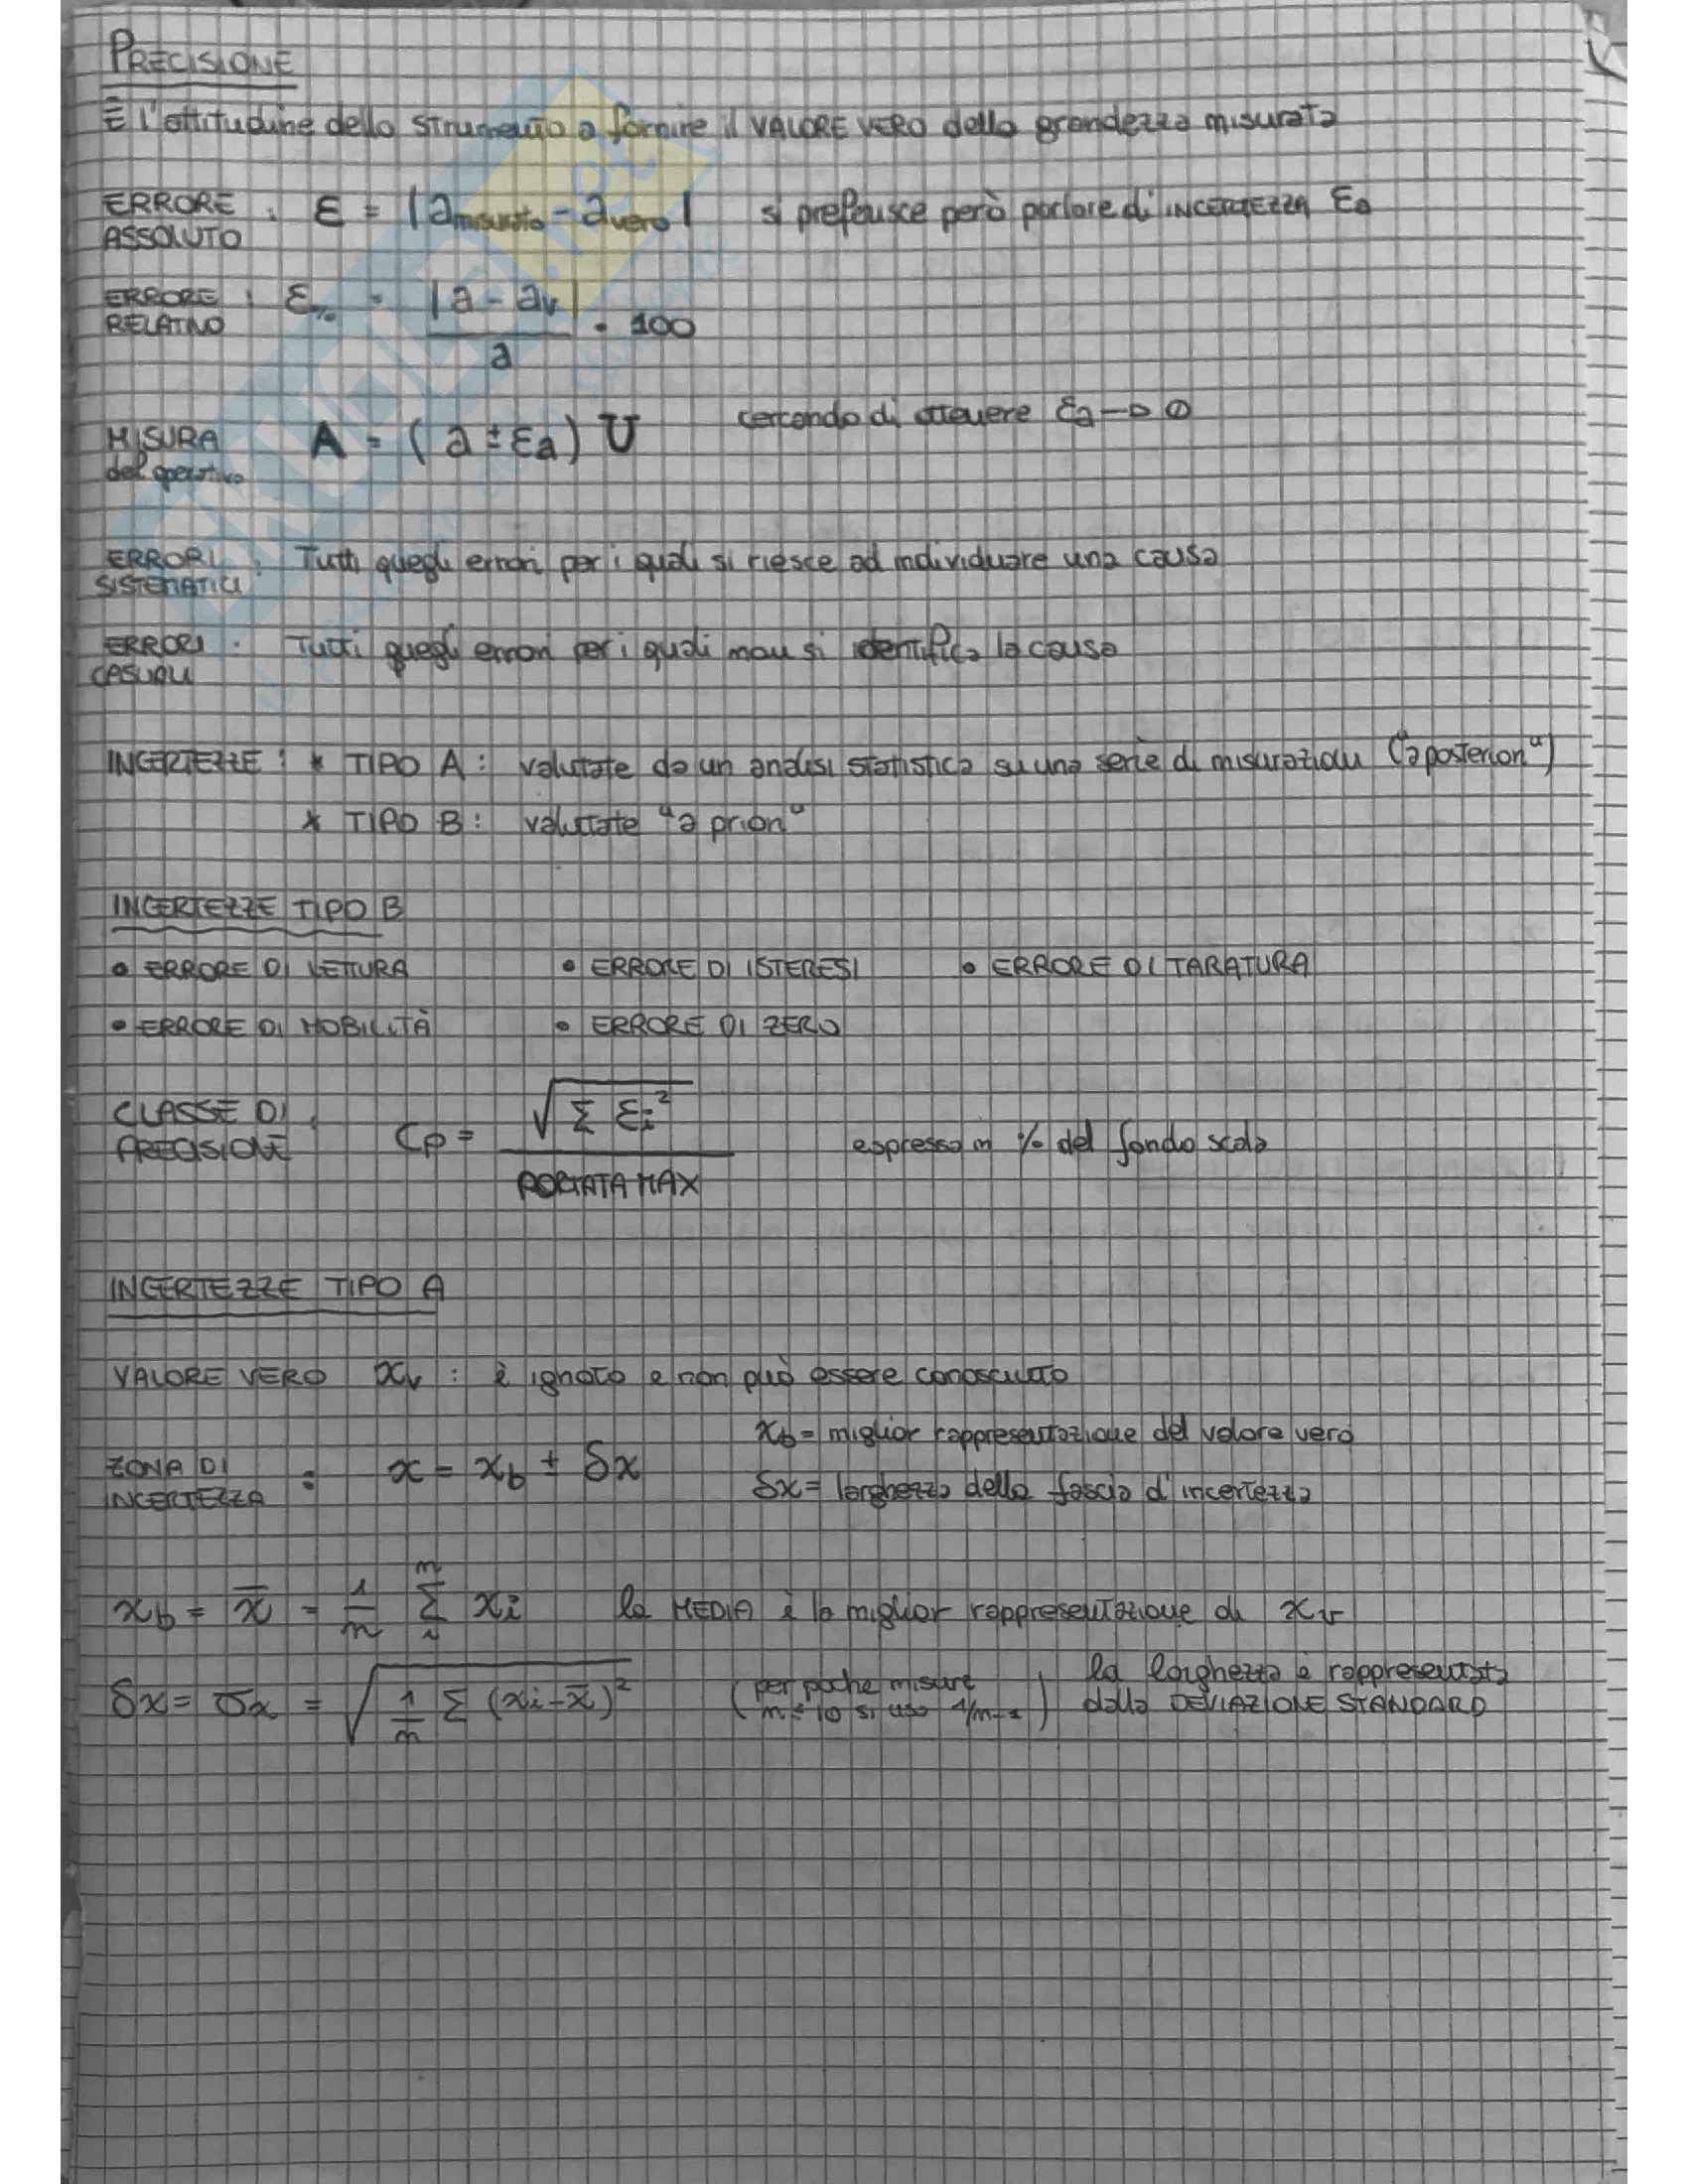 PRECISIONE
È l'attitudine dello strumento a fornire il VALORE VERO della grandezza misurata
ERRORE ASSOLUTO : ε = |a misurato - a vero| si preferisce però parlare di INCERTEZZA εa
ERRORE RELATIVO : ε% = |a - av| / a · 100
MISURA del A = (a ± εa) U cercando di ottenere εa → 0
ERRORI SISTEMATICI : Tutti quegli errori per i quali si riesce ad individuare una causa
ERRORI CASUALI : Tutti quegli errori per i quali non si identifica la causa
INCERTEZZE : * TIPO A : valutate da un analisi statistica su una serie di misurazioni ("a posteriori")
* TIPO B : valutate "a priori"
INCERTEZZE TIPO B
• ERRORE DI LETTURA • ERRORE DI ISTERESI • ERRORE DI TARATURA
• ERRORE DI MOBILITÀ • ERRORE DI ZERO
CLASSE DI PRECISIONE : Cp = √(Σ εi²) / PORTATA MAX espressa in % del fondo scala
INCERTEZZE TIPO A
VALORE VERO xv : è ignoto e non può essere conosciuto
xb = miglior rappresentazione del valore vero
ZONA DI INCERTEZZA : x = xb ± δx
δx = larghezza della fascia d'incertezza
xb = x̄ = 1/n Σ xi la MEDIA è la miglior rappresentazione di xv
δx = σx = √(1/n Σ (xi - x̄)²) (per poche misure n ≤ 10 si usa 1/n-1) la larghezza è rappresentata dalla DEVIAZIONE STANDARD